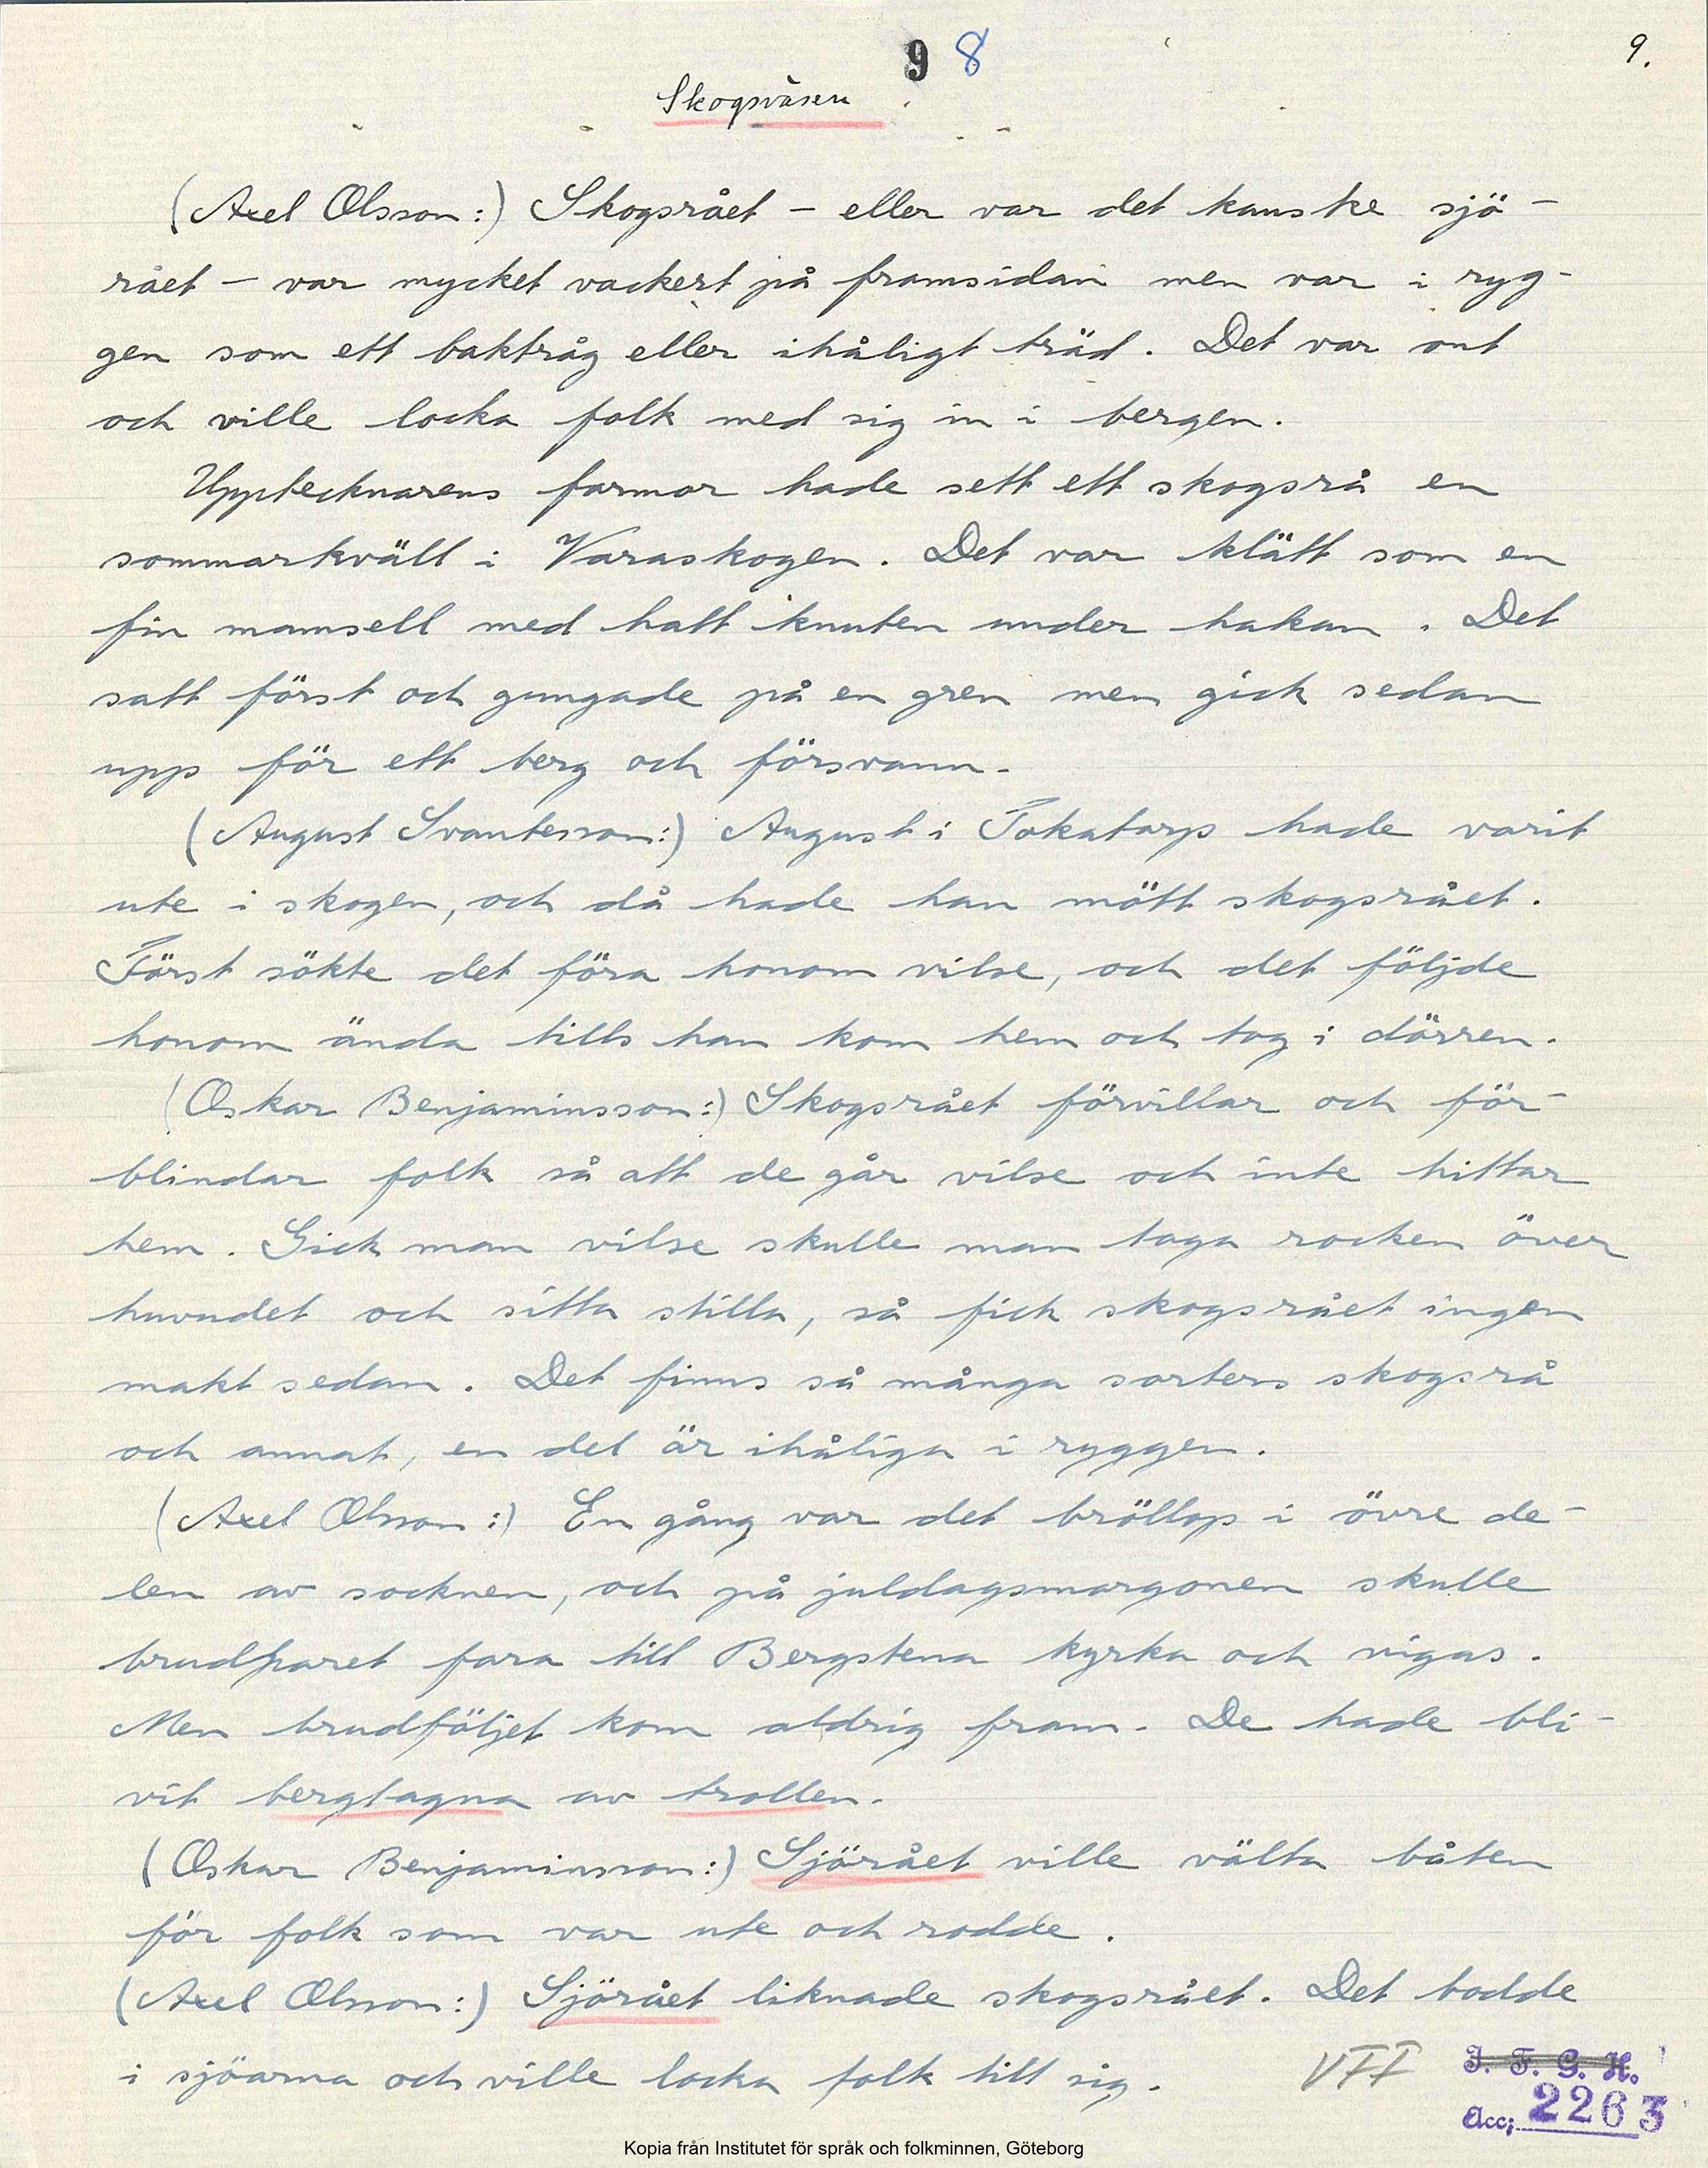 9 8
9.
Skogsväsen
(Axel Olsson:) Skogsrået – eller var det kanske sjö-
rået – var mycket vackert på framsidan men var i ryg-
gen som ett baktråg eller ihåligt träd. Det var ont
och ville locka folk med sig in i bergen.
Upptecknarens farmor hade sett ett skogsrå en
sommarkväll i Varaskogen. Det var klätt som en
fin mamsell med hatt knuten under hakan. Det
satt först och gungade på en gren men gick sedan
upp för ett berg och försvann.
(August Svantesson:) August i Tokatorp hade varit
ute i skogen, och då hade han mött skogsrået.
Först sökte det föra honom vilse, och det följde
honom ända tills han kom hem och tog i dörren.
(Oskar Benjaminsson:) Skogsrået förvillar och för-
blindar folk så att de går vilse och inte hittar
hem. Gick man vilse skulle man taga rocken över
huvudet och sitta stilla, så fick skogsrået ingen
makt sedan. Det finns så många sorters skogsrå
och annat, en del är ihåliga i ryggen.
(Axel Olsson:) En gång var det bröllop i övre de-
len av socknen, och på juldagsmorgonen skulle
brudparet fara till Bergstena kyrka och vigas.
Men brudföljet kom aldrig fram. De hade bli-
vit bergtagna av trollen.
(Oskar Benjaminsson:) Sjörået ville välta båten
för folk som var ute och rodde.
(Axel Olsson:) Sjörået liknade skogsrået. Det bodde
i sjöarna och ville locka folk till sig.
VFF
I. F. G. H.
Acc; 2263
Kopia från Institutet för språk och folkminnen, Göteborg